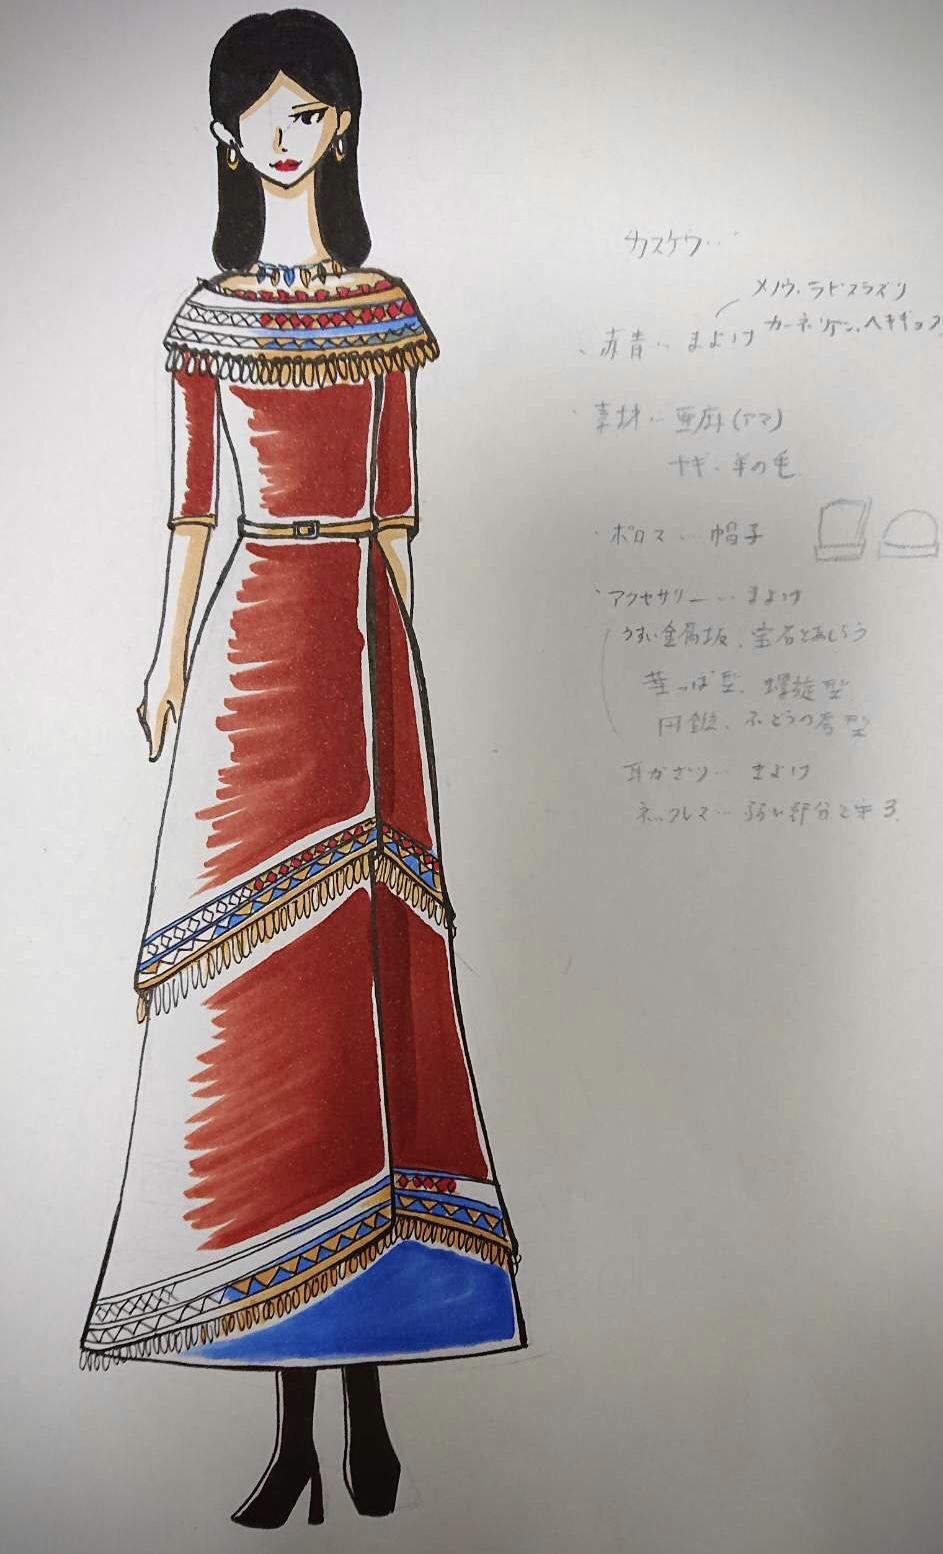 カスケウ…
メノウ、ラピスラズリ
・赤青… まよけ カーネリアン、ヘキギョク
・素材… 亜麻(アマ)
ヤギ・羊の毛
・ポロス… 帽子
・アクセサリー… まよけ
うすい金属板、宝石をあしらう
葉っぱ型、螺旋型
円錐、ぶどうの房型
耳かざり… まよけ
ネックレス… 弱い部分を守る